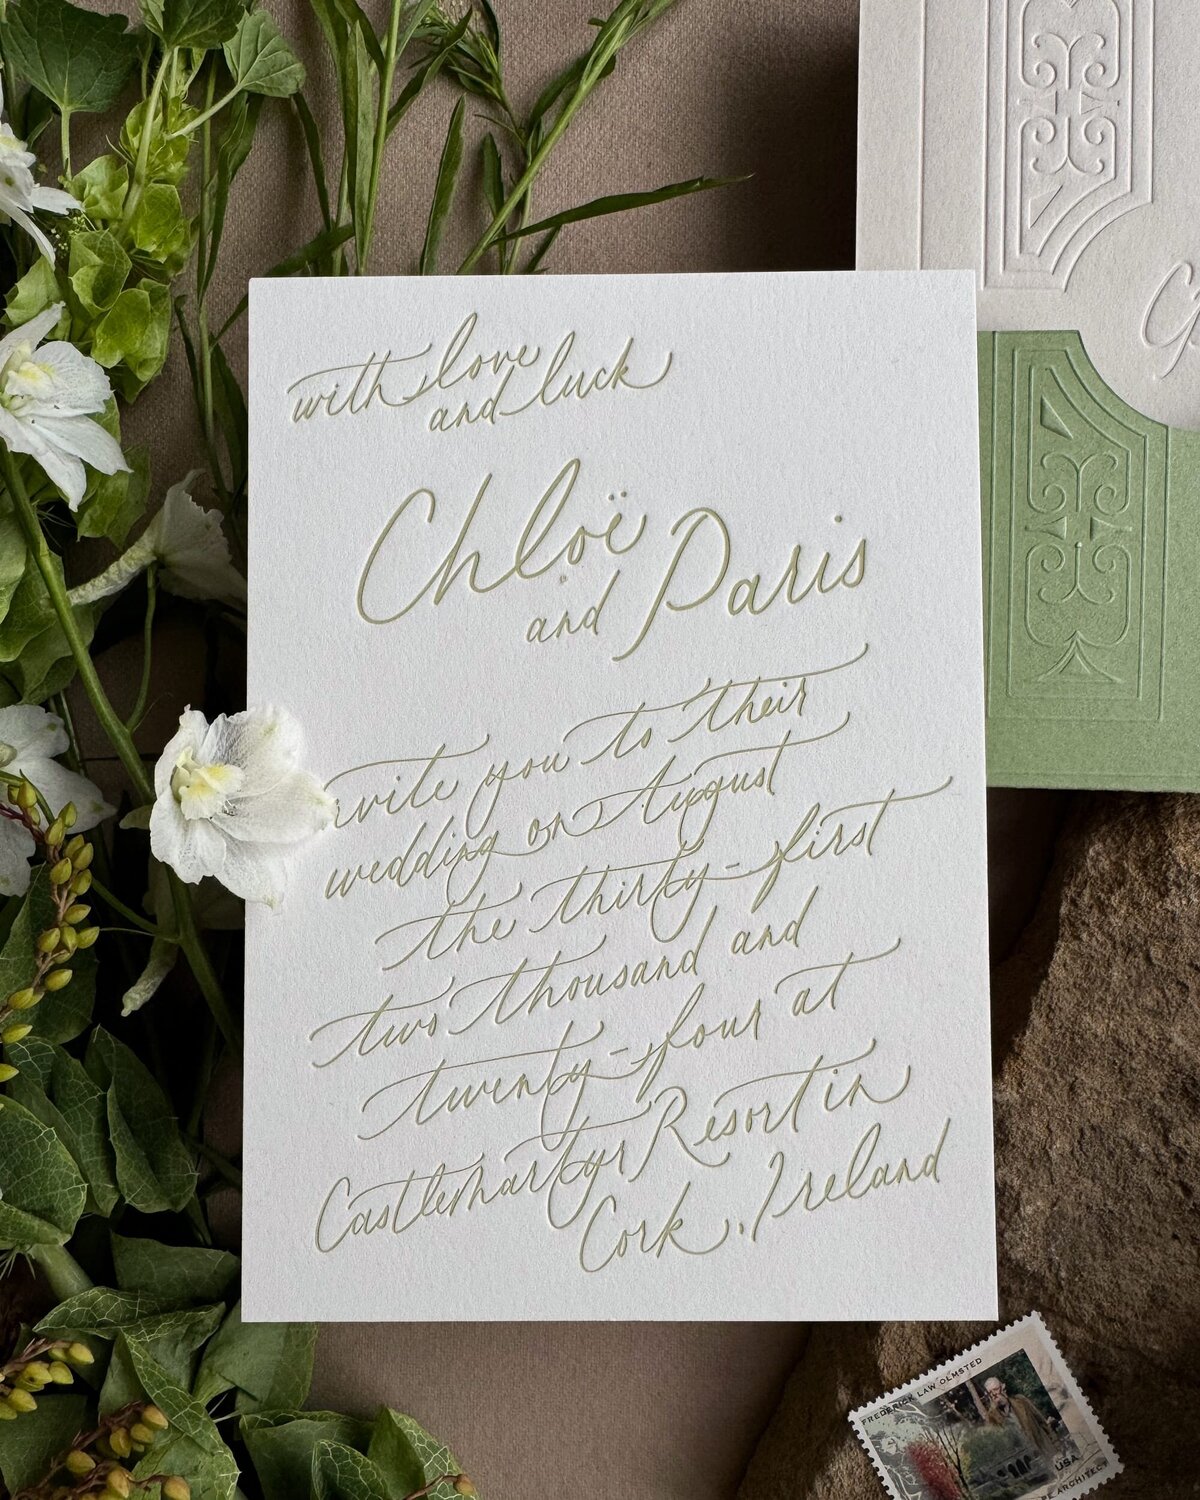 with love
and luck
Chloë
and Paris
invite you to their
wedding on August
the thirty-first
two thousand and
twenty-four at
Castlemartyr Resort in
Cork, Ireland
FREDERICK LAW OLMSTED
USA